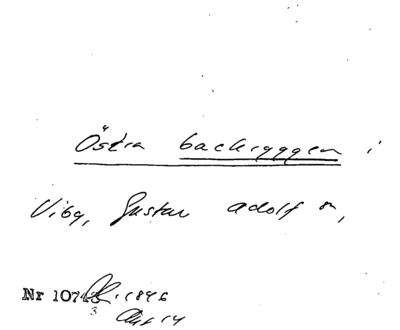 Östra backryggen i
Viby, Gustav Adolf sn,
Nr 107
1846
3